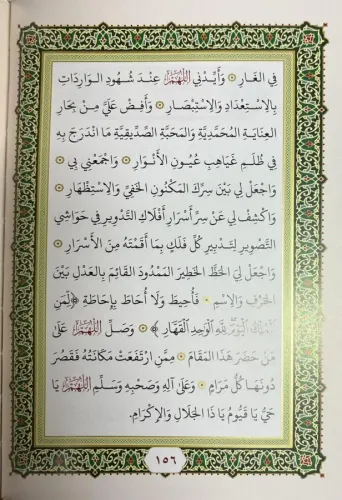 فِي الغَارِ ۞ وَأَيِّدْنِي اللَّهُمَّ عِنْدَ شُهُودِ الوَارِدَاتِ
بِالِاسْتِعْدَادِ وَالِاسْتِبْصَارِ ۞ وَأَفِضْ عَلَيَّ مِنْ بِحَارِ
العِنَايَةِ المُحَمَّدِيَّةِ وَالمَحَبَّةِ الصِّدِّيقِيَّةِ مَا انْدَرَجَ بِهِ
فِي ظُلَمِ غَيَاهِبِ عُيُونِ الأَنْوَارِ ۞ وَاجْمَعْنِي بِي ۞
وَاجْعَلْ لِي بَيْنَ سِرِّكَ المَكْنُونِ الخَفِيِّ وَالِاسْتِظْهَارِ ۞
وَاكْشِفْ لِي عَنْ سِرِّ أَسْرَارِ أَفْلَاكِ التَّدْوِيرِ فِي حَوَاشِي
التَّصْوِيرِ لِتَدْبِيرِ كُلِّ فَلَكٍ بِمَا أَقَمْتَهُ مِنَ الأَسْرَارِ ۞
وَاجْعَلْ لِيَ الحَظَّ الخَطِيرَ المَمْدُودَ القَائِمَ بِالعَدْلِ بَيْنَ
الحَرْفِ وَالِاسْمِ ۞ فَأُحِيطَ وَلَا أُحَاطَ بِإِحَاطَةِ ﴿لِّمَنِ
الْمُلْكُ الْيَوْمَ لِلَّهِ الْوَاحِدِ الْقَهَّارِ﴾ ۞ وَصَلِّ اللَّهُمَّ عَلَى
مَنْ حَضَرَ هَذَا المَقَامَ ۞ مِمَّنِ ارْتَفَعَتْ مَكَانَتُهُ فَقَصُرَ
دُونَهَا كُلُّ مَرَامٍ ۞ وَعَلَى آلِهِ وَصَحْبِهِ وَسَلِّمِ اللَّهُمَّ يَا
حَيُّ يَا قَيُّومُ يَا ذَا الجَلَالِ وَالإِكْرَامِ.
١٥٦